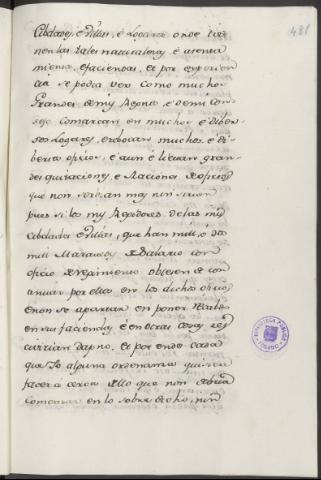 481
Cibdades, é Villas, é Logares onde tie
nen las tales naturalezas, é asenta
mientos, é faciendas, et por experien
cia se podia ver como muchos
Grandes de my Regno, é de mi Con
sejo comarcan en muchos é diver
sos Logares, en bocan muchos, é di
versos oficios, é aun llevan gran
des quitaciones, é Raciones de oficios
que non servian mas nin sirven
pues si los mys Regidores de las mys
Cibdades é Villas, que han mill, é dos
mill Maravedis de Salario con
oficio de regimiento obiesen de con
tinuar por ellos en los dichos oficios
é non se apartar en poner Recabdo
en sus faciendas, é en otras cosas res
civirian dapno, et por ende caso
que Yo alguna ordenanza quisiera
facer acerca dello que non debria
comenzar en lo sobre dicho, nin
BIBLIOTECA PUBLICA
TOLEDO